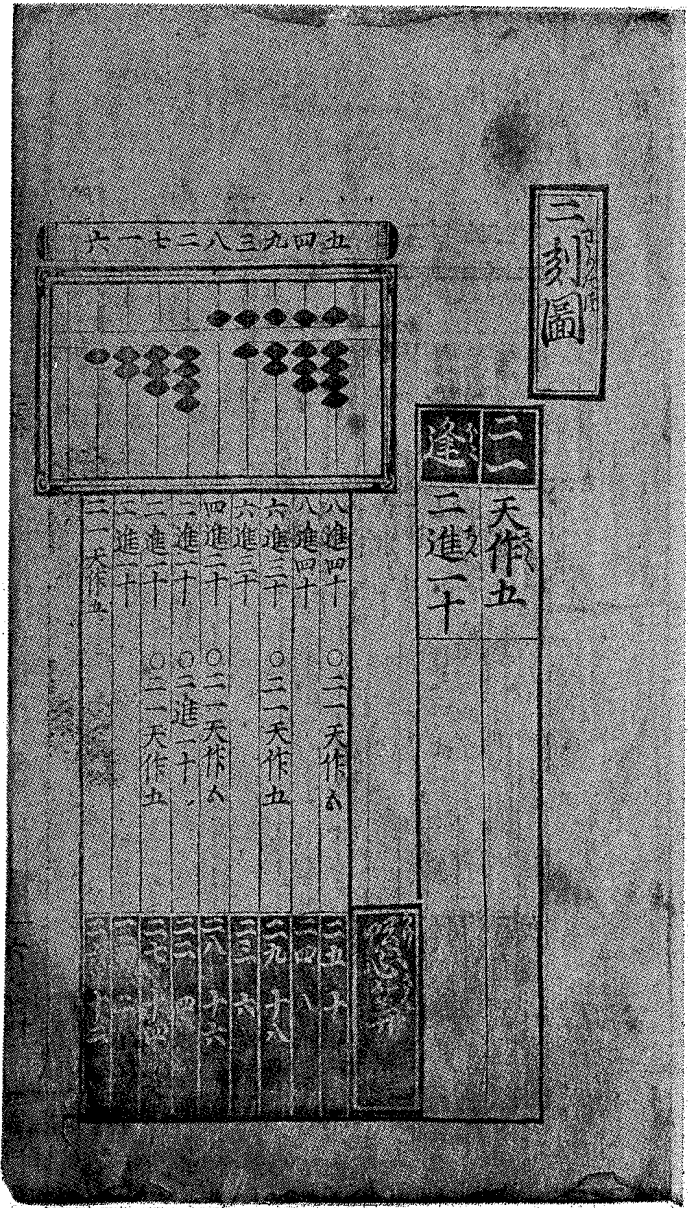 二刻圖
二一 天作五
逢 二進一十
五四九三八二七一六
八進四十 〇二一天作五
八進四十
六進三十 〇二一天作五
六進三十
四進二十 〇二一天作五
二進一十 〇二進一十
二進一十 〇二一天作五
二進一十
二一天作五
二五 十
二四 八
二九 十八
二三 六
二八 十六
二二 四
二七 十四
二一 二
二六 十二